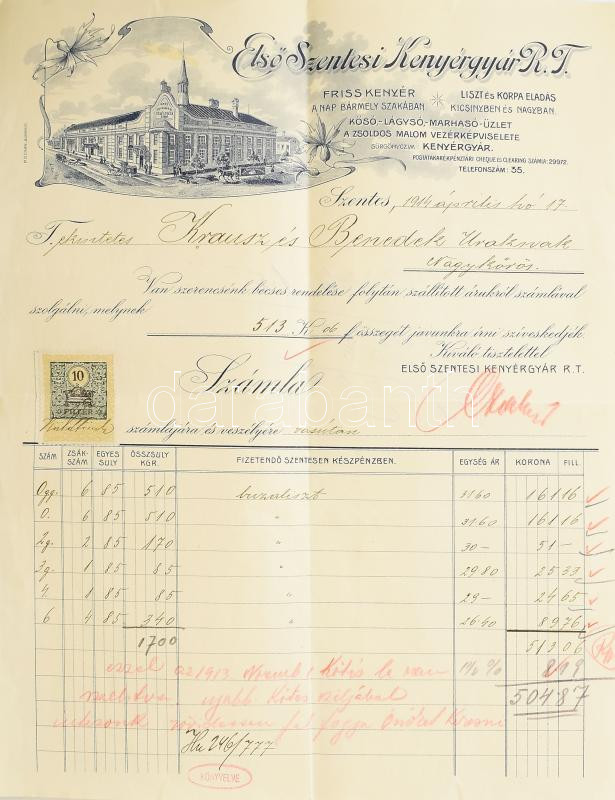 Első Szentesi Kenyérgyár R.T.
FRISS KENYÉR
A NAP BÁRMELY SZAKÁBAN
LISZT és KORPA ELADÁS
KICSINYBEN ÉS NAGYBAN.
KŐSÓ-LÁGYSÓ,-MARHASÓ-ÜZLET
A ZSOLDOS MALOM VEZÉRKÉPVISELETE
SÜRGÖNYCZIM: KENYÉRGYÁR.
POSTATAKARÉKPÉNZTÁRI CHEQUE ÉS CLEARING SZÁMLA: 29972.
TELEFONSZÁM: 35.
Szentes, 1914 április hó 17.
Tekintetes Krausz és Benedek Uraknak
Nagykőrös.
Van szerencsénk becses rendelése folytán szállított árukról számlával
szolgálni, melynek
513 K 06 f összegét javunkra írni szíveskedjék.
Kiváló tisztelettel
ELSŐ SZENTESI KENYÉRGYÁR R.T.
10
FILLÉR
Számla
számlájára és veszélyére vasúton
SZÁM ZSÁK-SZÁM EGYES SULY ÖSSZSULY KGR. FIZETENDŐ SZENTESEN KÉSZPÉNZBEN. EGYSÉG ÁR KORONA FILL.
0gg. 6 85 510 buzaliszt 31 60 161 16
0. 6 85 510 " 31 60 161 16
2g 2 85 170 " 30 - 51 -
3g 1 85 85 " 29 80 25 33
4. 1 85 85 " 29 - 24 65
6 4 85 340 " 26 40 89 76
1700 513 06
ezzel az 1913. Novemb 1 Kötés le van
8 19
504 87
ujabb Kötés
Önöket
246/777
KÖNYVELVE
darabanth